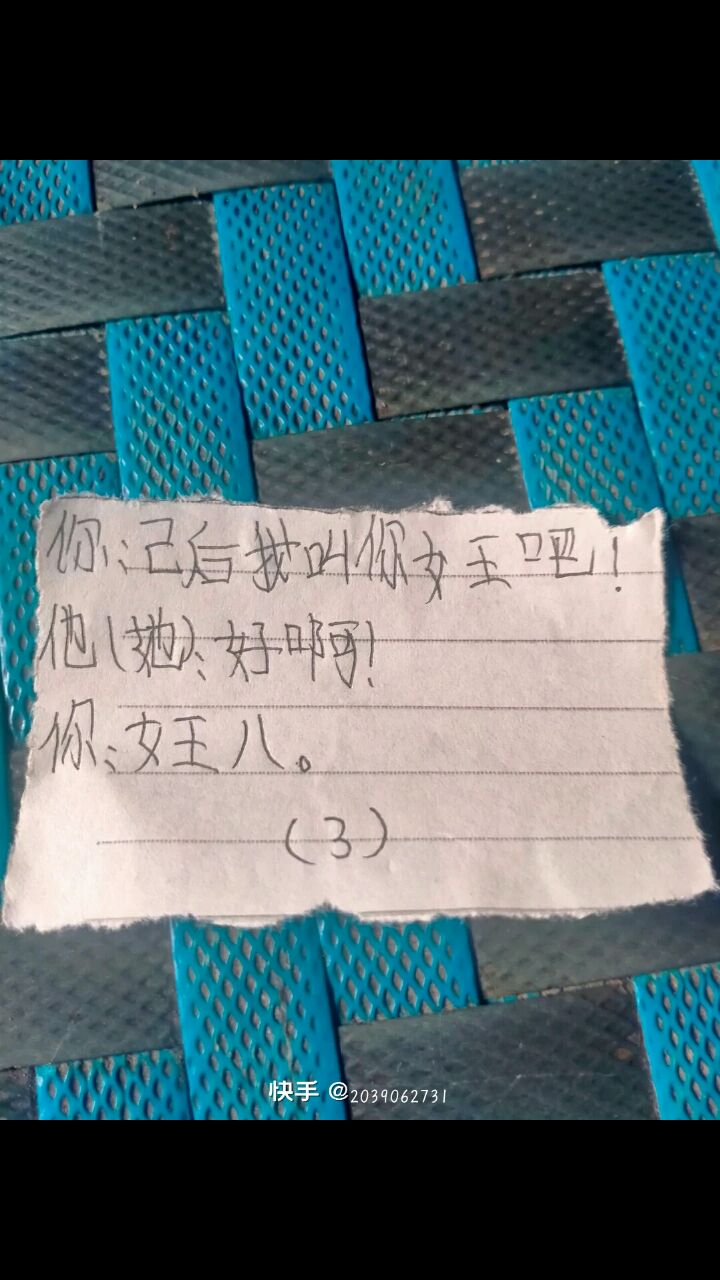 你:己后我叫你女王吧!
他(她):好啊!
你:女王八。
(3)
快手 @2039062731